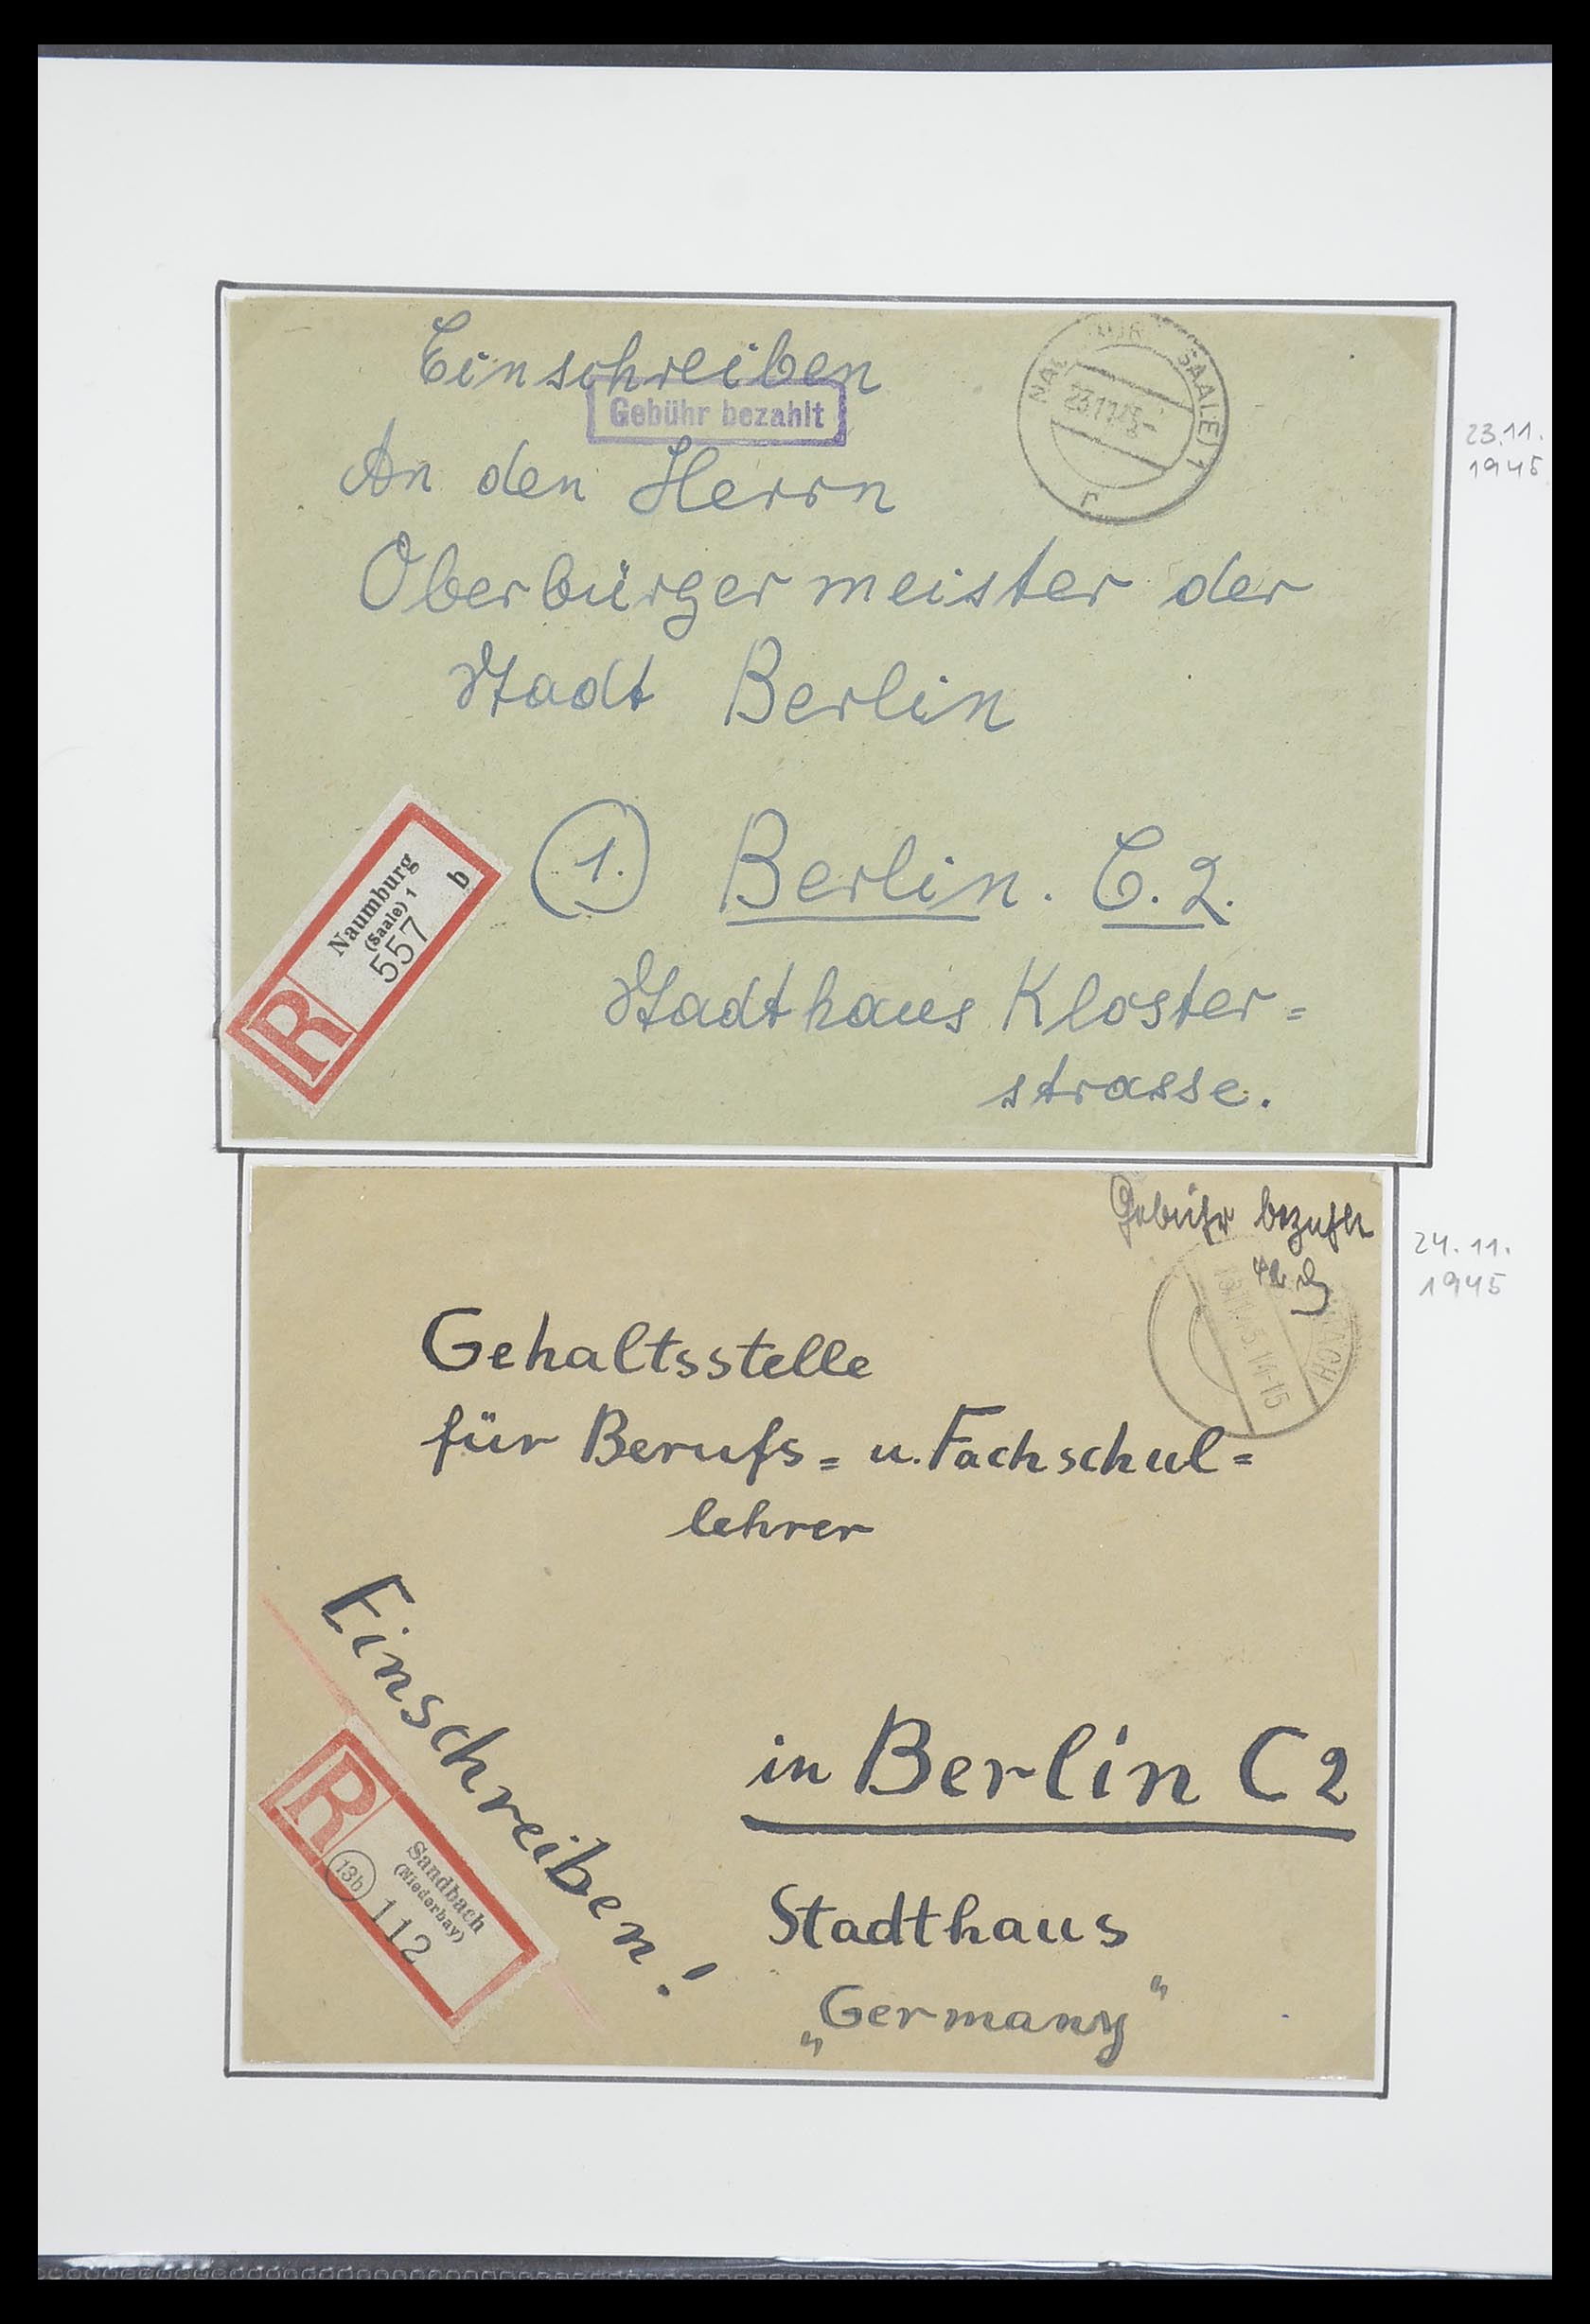 Einschreiben
Gebühr bezahlt
An den Herrn
Oberbürgermeister der
Stadt Berlin
SAALE) 1
23.11.45-
r
23.11.
1945
Naumburg
(Saale) 1
557
b
R
1. Berlin. C. 2.
Stadthaus Kloster=
strasse.
Gebühr bezahlt
14-15
24.11.
1945
Gehaltsstelle
für Berufs= u. Fachschul=
lehrer
Einschreiben!
R
Sandbach
(Niederbay)
13b
112
in Berlin C2
Stadthaus
„Germany“